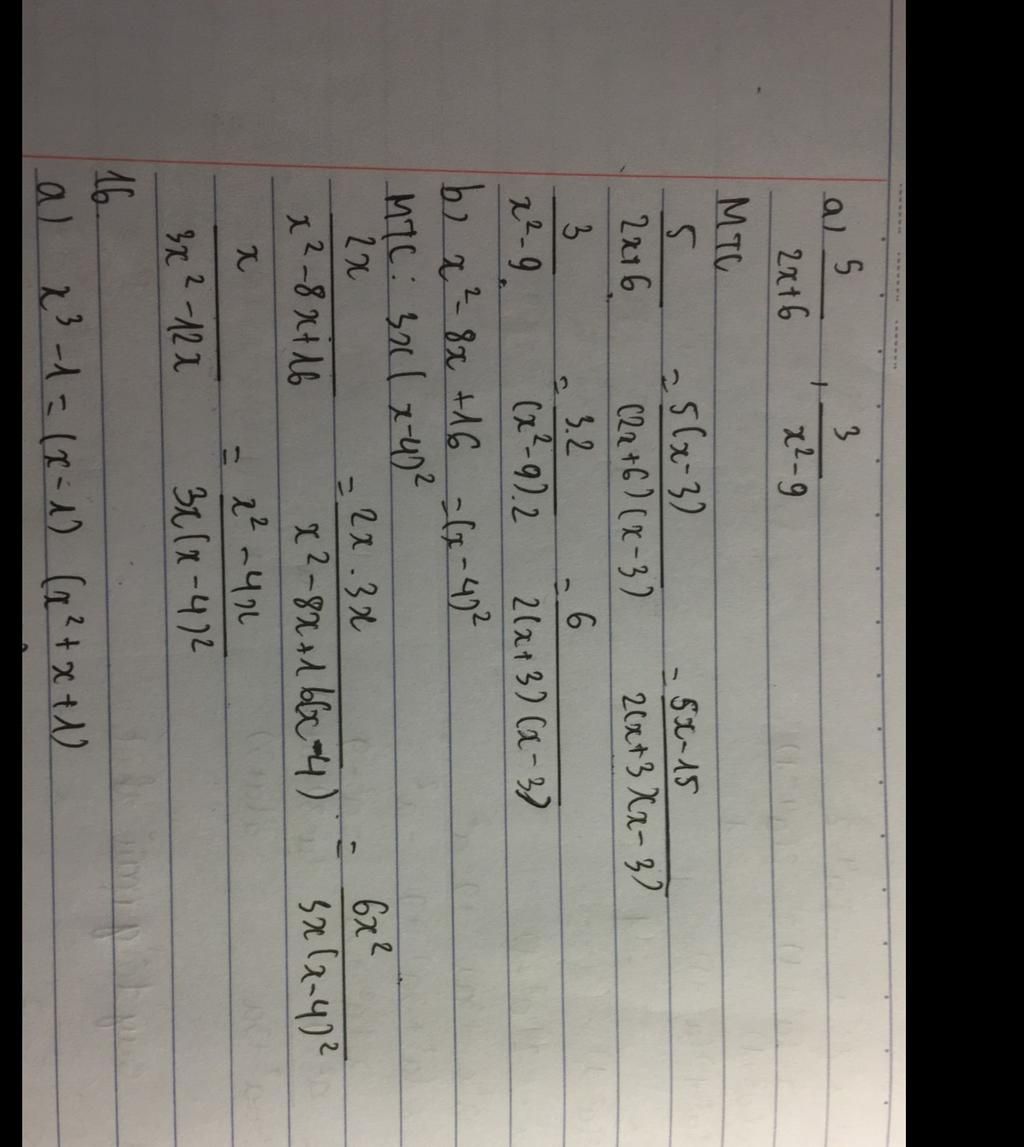 a) 5/(2x+6) , 3/(x²-9)
MTC
5/(2x+6) = 5(x-3)/((2x+6)(x-3)) = 5x-15/(2(x+3)(x-3))
3/(x²-9) = 3.2/((x²-9).2) = 6/(2(x+3)(x-3))
b) x² - 8x + 16 = (x-4)²
MTC: 3x(x-4)²
2x/(x²-8x+16) = 2x.3x/(x²-8x+16(x-4)) = 6x²/(3x(x-4)²)
x/(3x²-12x) = x²-4x/(3x(x-4)²)
16
a) x³-1 = (x-1) (x²+x+1)